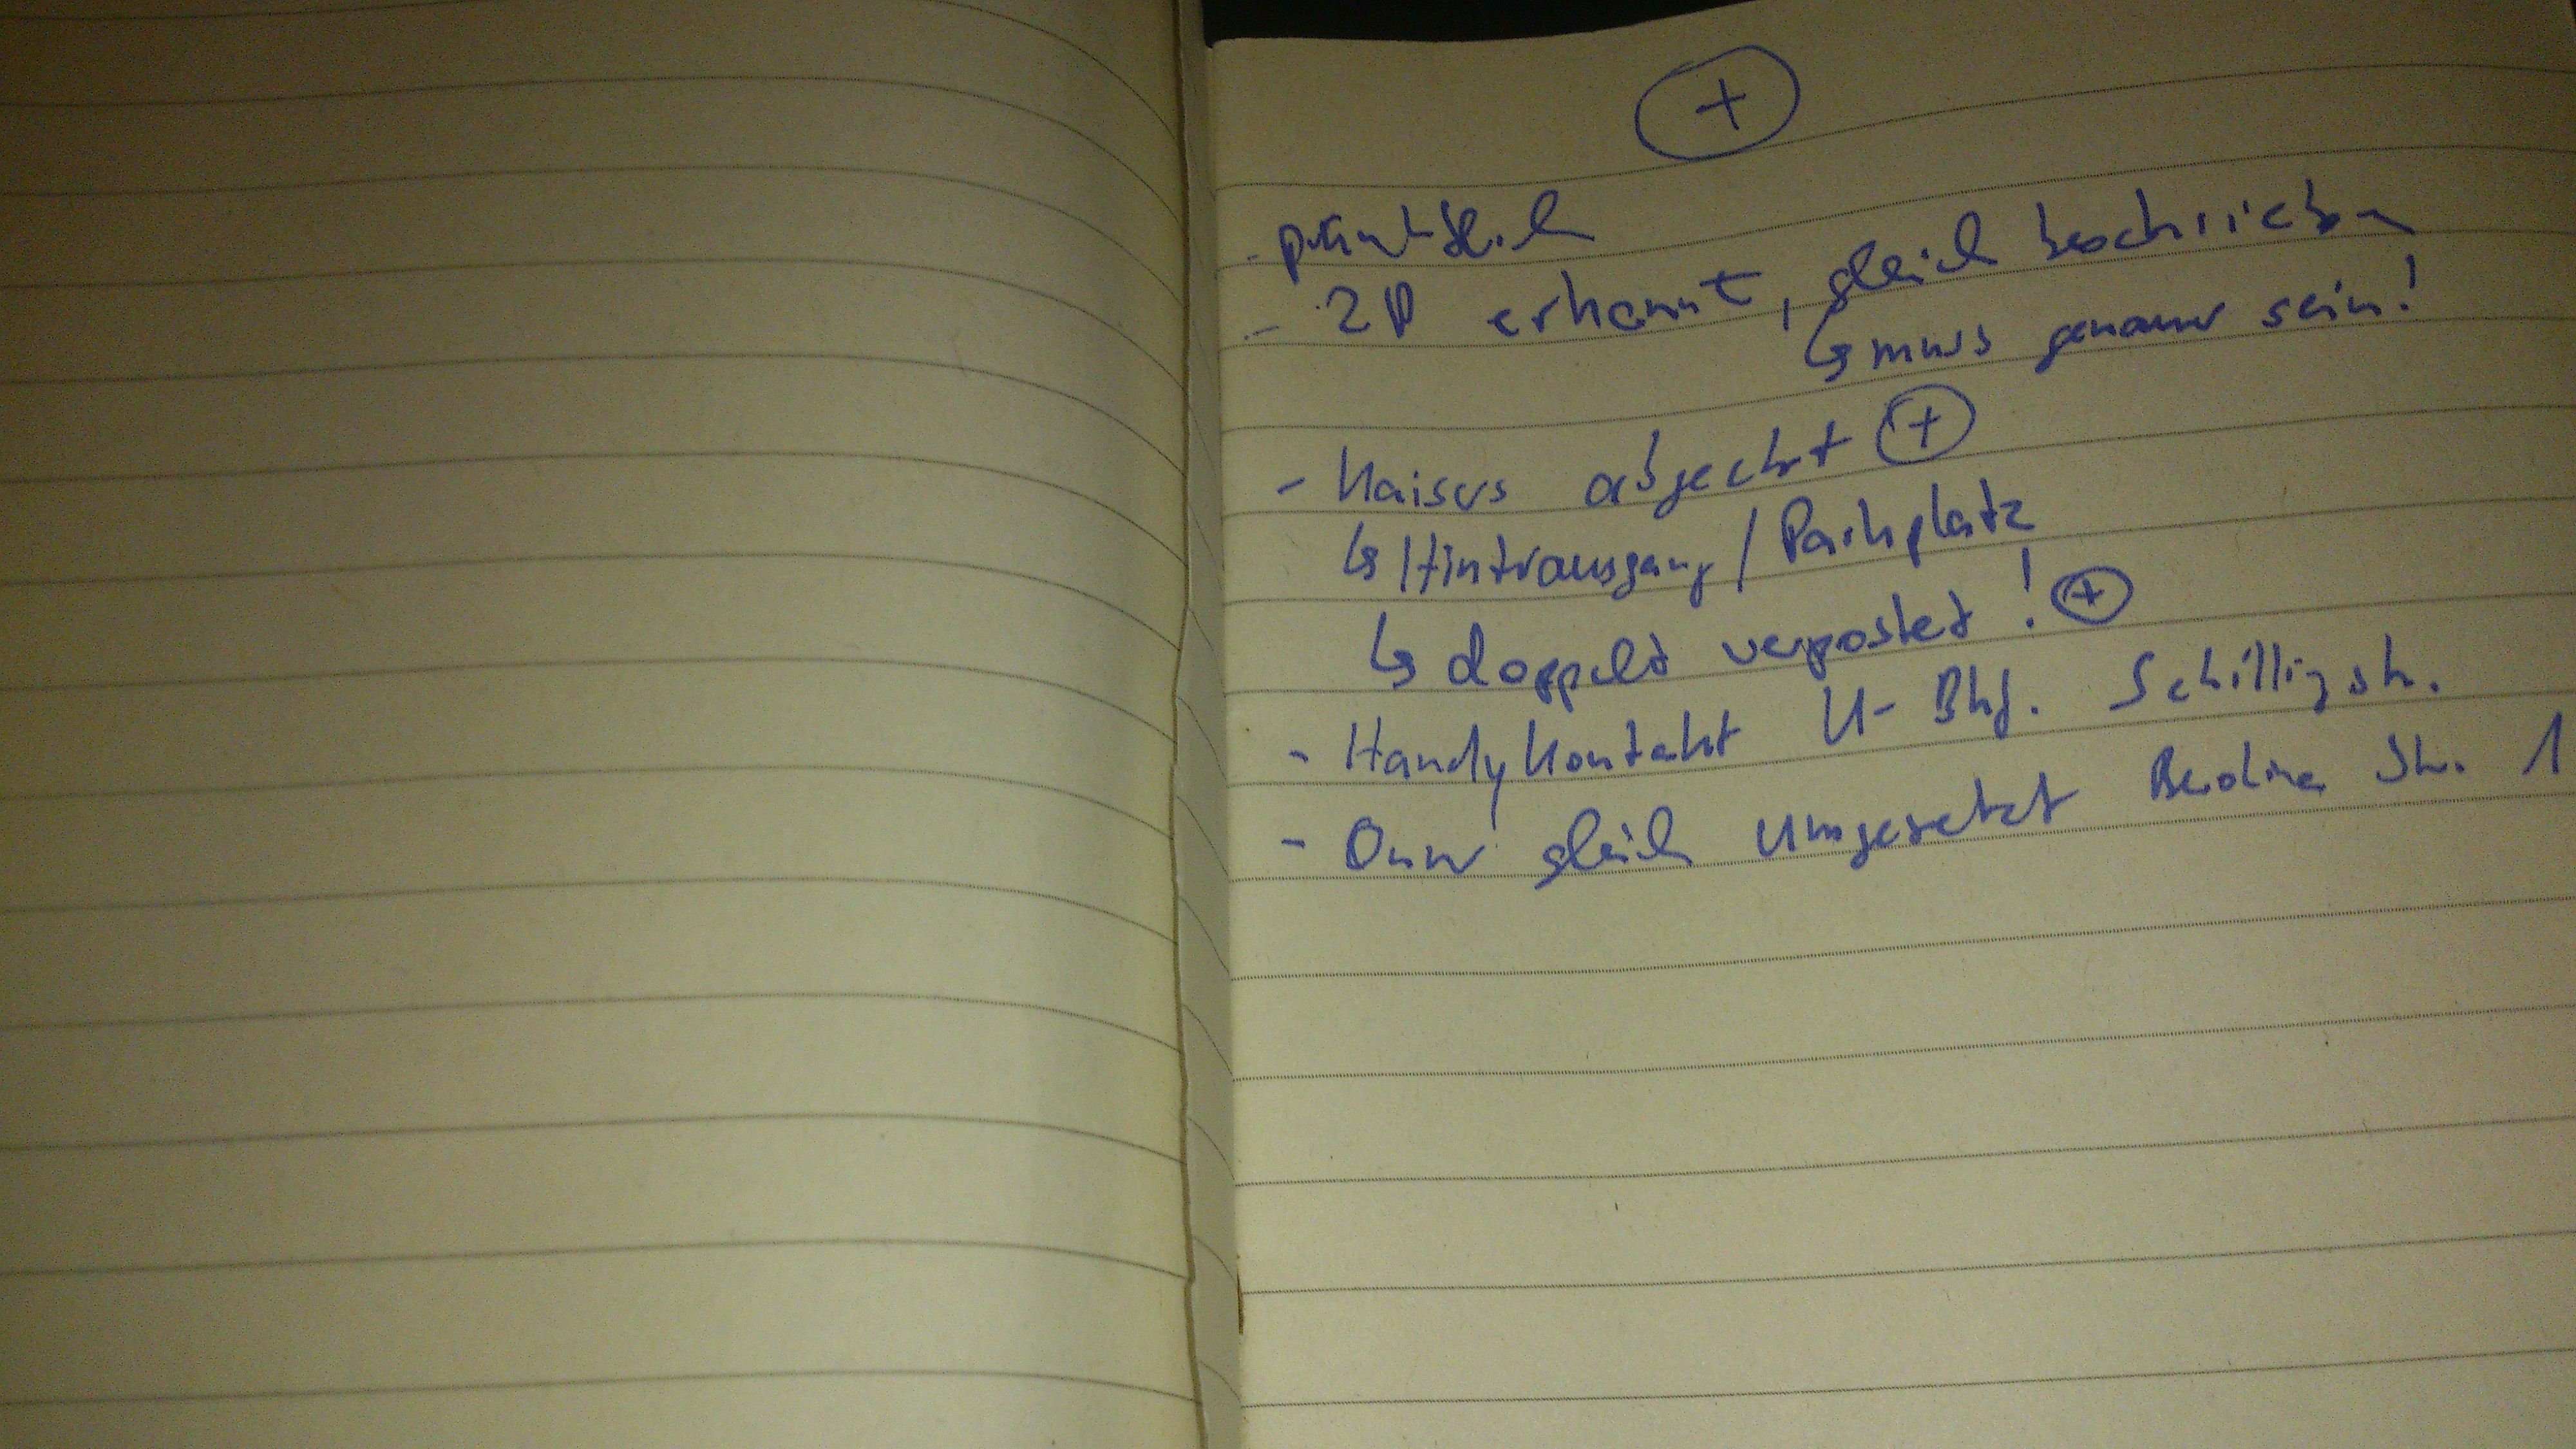 +
- pünktlich
- ZP erkannt, gleich beschrieben
↳ muss genauer sein!
- Kaisers abgeckt +
↳ Hinterausgang / Parkplatz
↳ doppelt verpostet! +
- Handykontakt U-Bhf. Schillingstr.
- gleich umgesetzt Berliner Str. 1